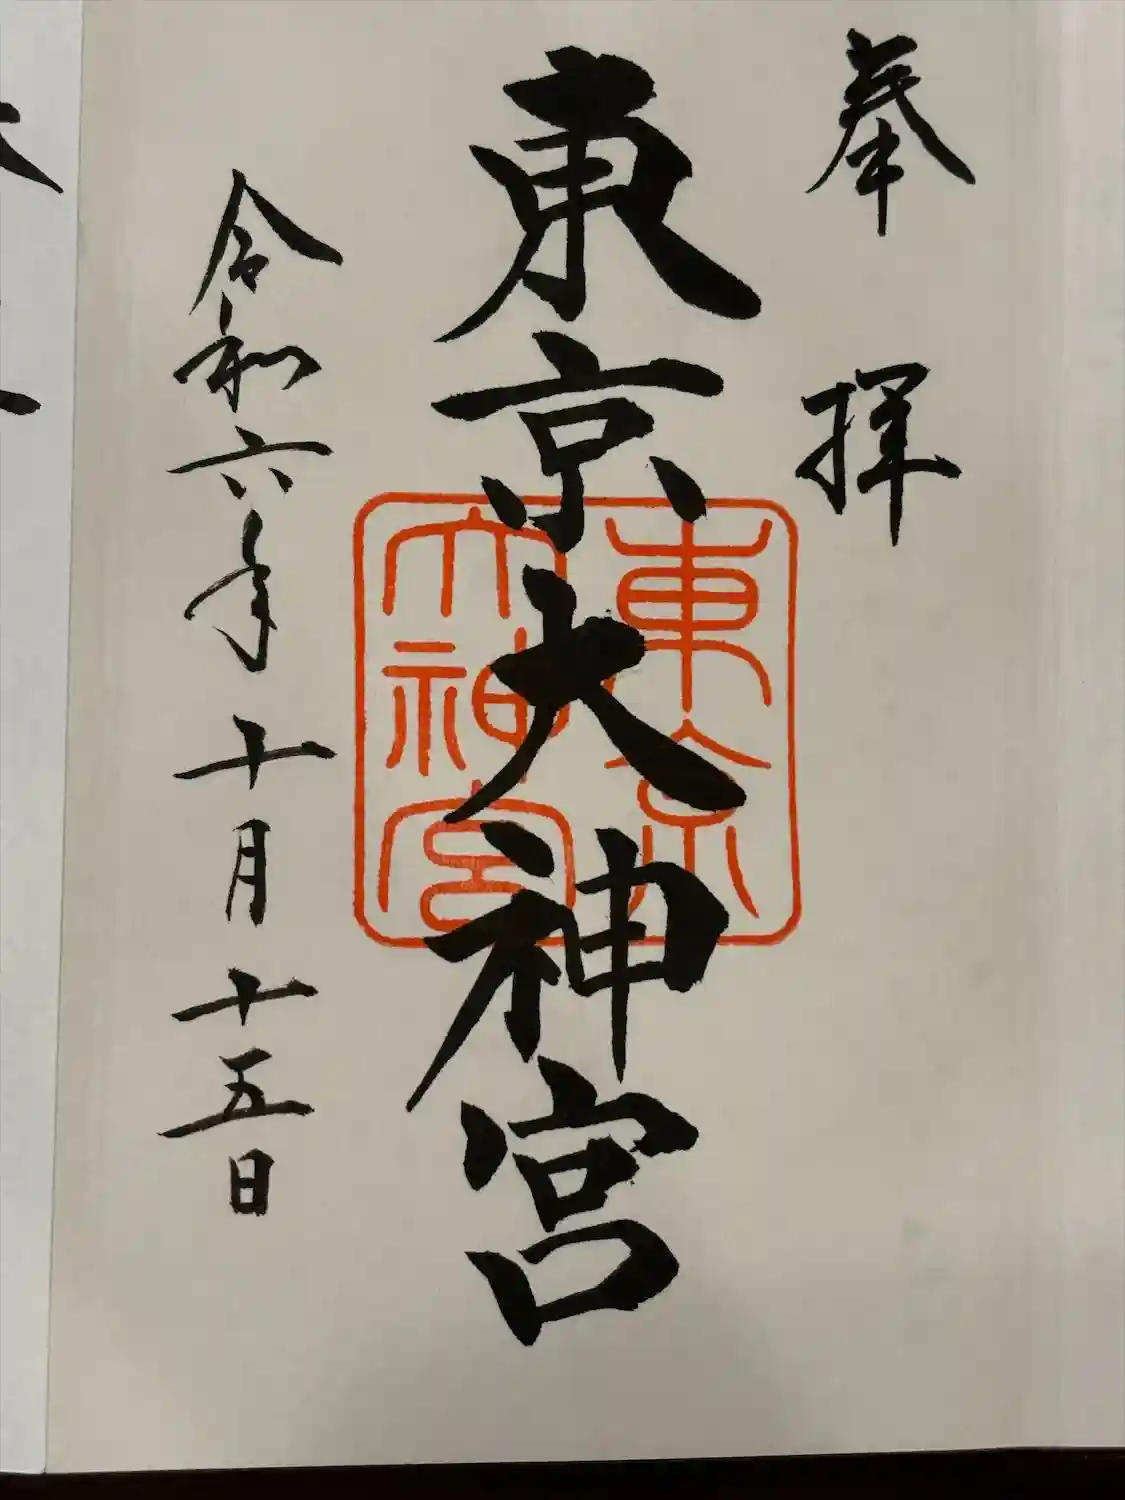 奉拝
東京大神宮
東京
大神宮
令和六年十月十五日